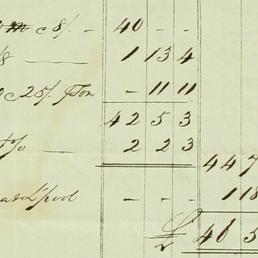 c 8/. - 40 - -
/8 — 1 13 4
c 25/. ⅌ Ton - 11 11
42 5 3
% — 2 2 3
44 7
at L'pool - - - 118
£ 46 5